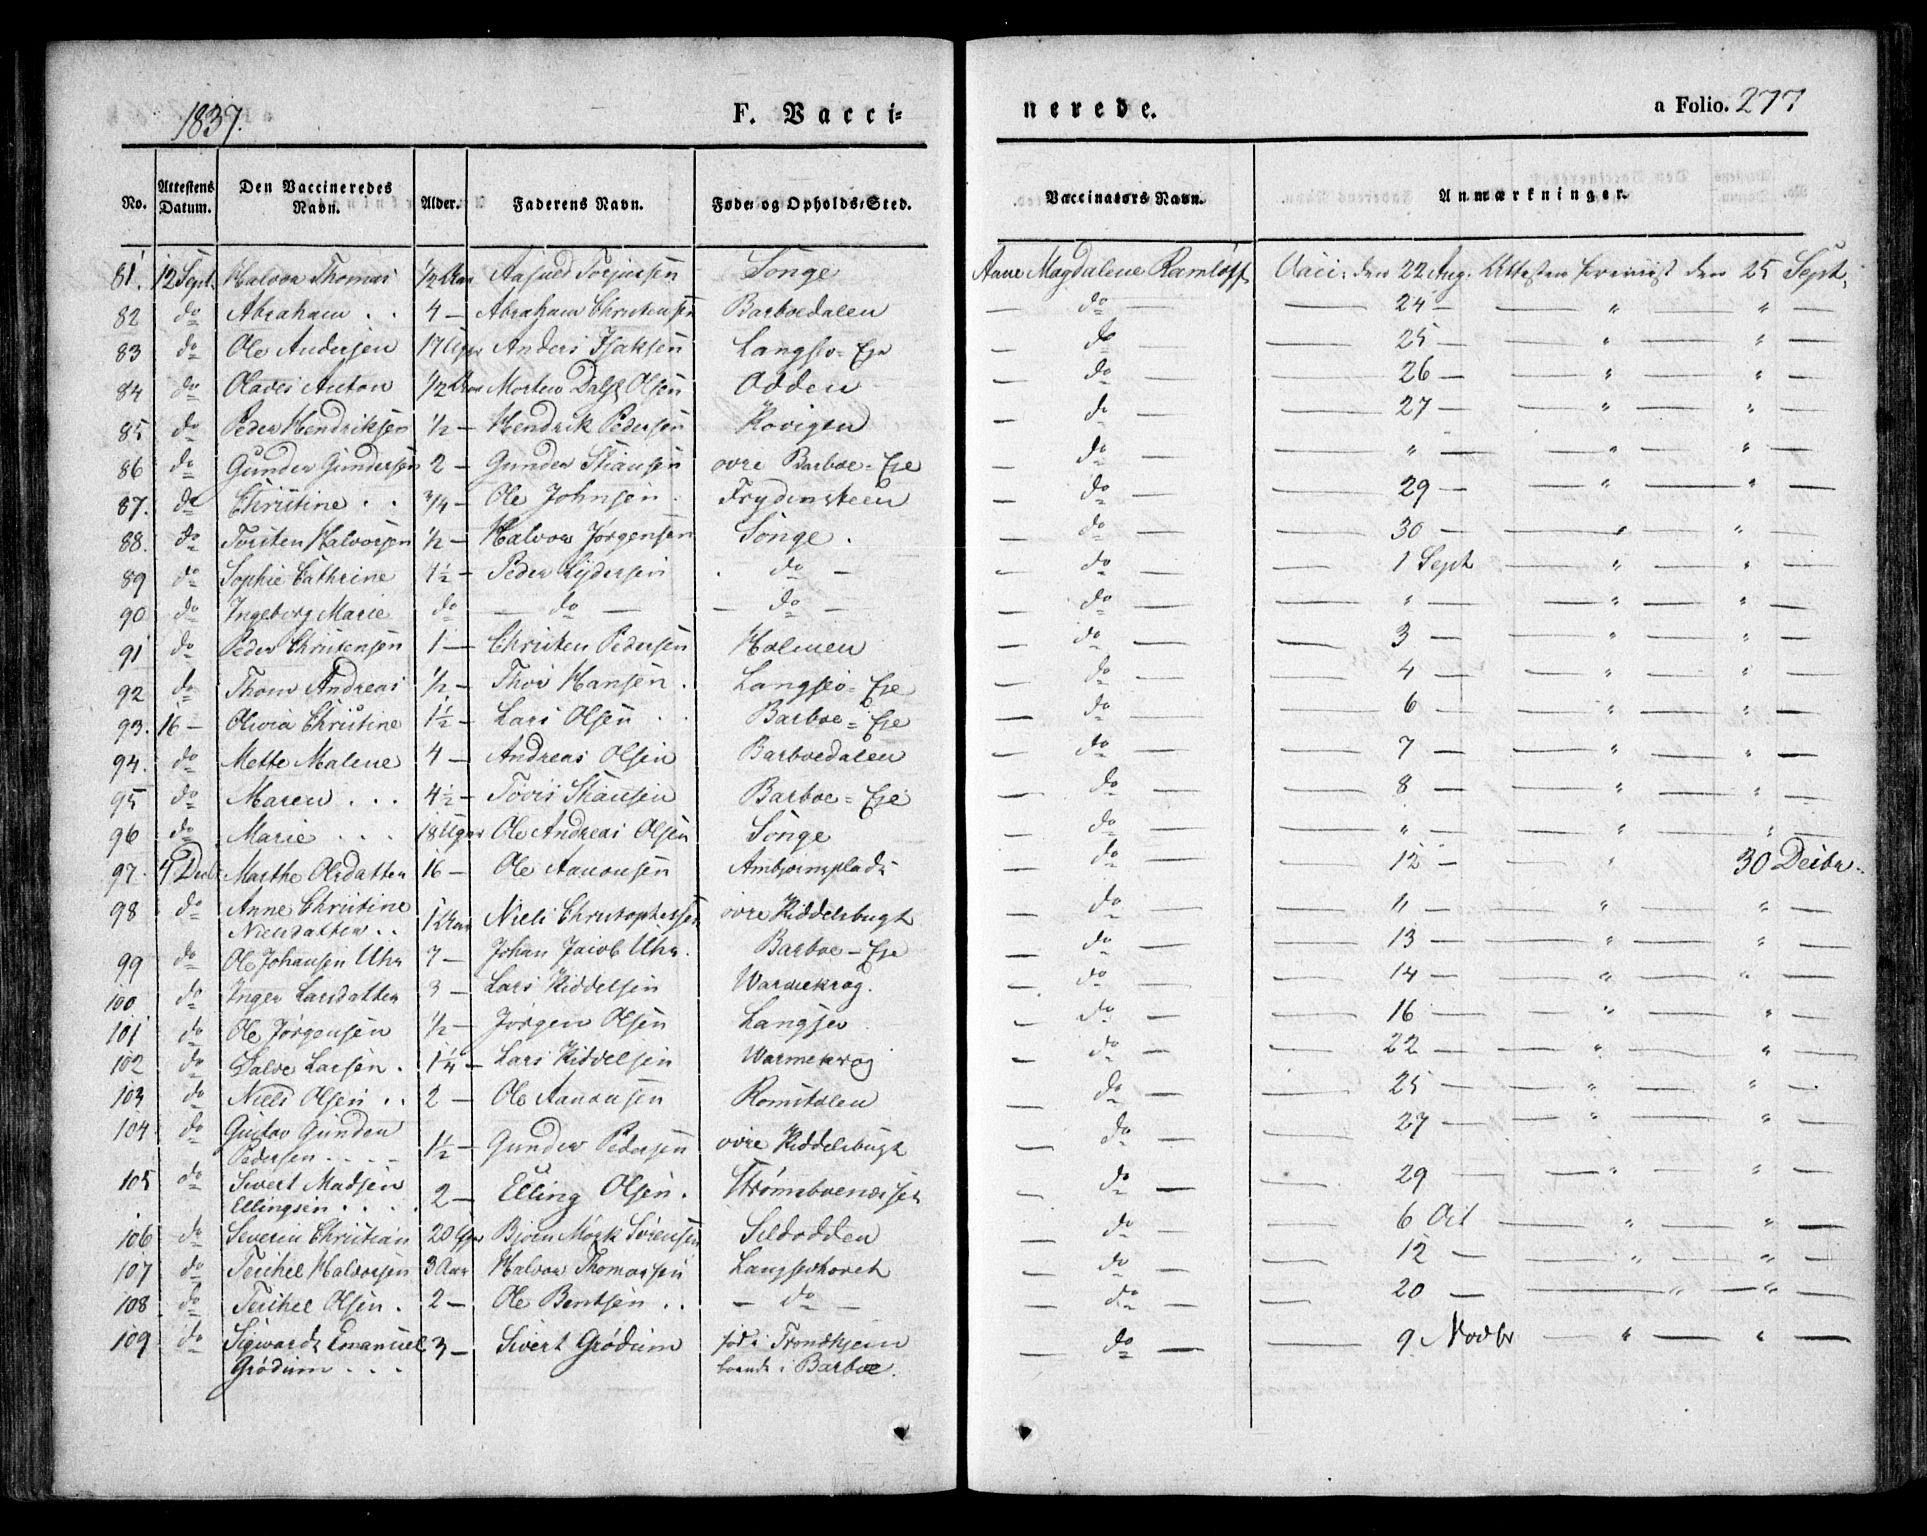 1837.
F. Vacci=
nerede.
a Folio. 277
No. | Attestens Datum. | Den Vaccineredes Navn. | Alder. | Faderens Navn. | Føde= og Opholds=Sted. | Vaccinators Navn. | Anmærkninger.
81. | 12 Sept. | Halvor Thomas | 1/2 Aar | Aasued Torjussen | Songe | Anne Magdalene Ramløff | Vacc: den 22 Aug. Attesten leveret den 25 Sept.
82 | do | Abraham . . | 4 — | Abraham Christensen | Barboedalen | — do — | — 24 — " — " —
83 | do | Ole Andersen | 17 Uger | Anders Isaksen | Langsev=Eje | — do — | — 25 — " — " —
84 | do | Olaves Anton | 1/2 Aar | Morten Dahl Olsen | Odden | — do — | — 26 — " — " —
85 | do | Peder Hendriksen | 1/2 — | Hendrik Pedersen | Kovigen | — do — | — 27 — " — " —
86 | do | Gunder Gundersen | 2 — | Gunder Stiansen | ovre Barboe=Eje | — do — | — " — " — " —
87. | do | Christine . . | 3/4 — | Ole Johnsen . | Frydensteen | — do — | — 29 — " — " —
88. | do | Torsten Halvorsen | 1/2 — | Halvor Jørgensen | Songe . | — do — | — 30 — " — " —
89 | do | Sophie Cathrine | 4 1/2 — | Peder Lydersen | . do — | — do — | — 1 Sept — " — " —
90 | do | Ingeborg Marie | do | — do — | — do — | — do — | — " — " — " —
91 | do | Peder Christensen | 1 — | Christen Pedersen | Holmen | — do — | — 3 — " — " —
92 | do | Thom Andreas | 1/2 — | Thor Hansen . | Langsev=Eje | — do — | — 4 — " — " —
93. | 16 — | Olivia Christine | 1 1/2 — | Lars Olsen . . | Barboe=Eje | — do — | — 6 — " — " —
94. | do | Mette Malene | 4 — | Andreas Olsen | Barboedalen | — do — | — 7 — " — " —
95 | do | Maren . . . | 4 1/2 — | Tovis Stiansen | Barboe=Eje | — do — | — 8 — " — " —
96 | do | Marie . . . | 18 Uger | Ole Andreas Olsen | Songe | — do — | — " — " — " —
97. | 4 Decb | Marthe Olsdatter | 16 — | Ole Aanonsen | Ambjørnsplads | — do — | — 12 — " 30 Decbr.
98 | do | Anne Christine
Nielsdatter . . | 1 Aar | Niels Christophersen | ovre Kiddelsbugt | — do — | — " — " — " —
99 | do | Ole Johansen Uhr | 7 — | Johan Jacob Uhr. | Barboe — Eje | — do — | — 13 — " — " —
100 | do | Inger Larsdatter | 3 — | Lars Kiddelsen | Warmekrog. | — do — | — 14 — " — " —
101 | do | Ole Jørgensen | 1/2 — | Jørgen Olsen | Langsev | — do — | — 16 — " — " —
102 | do | Salve Larsen . | 1 1/4 — | Lars Kiddelsen | Warmekrog | — do — | — 22 — " — " —
103 | do | Niels Olsen . . | 2 — | Ole Aanonsen | Romstolen | — do — | — 25 — " — " —
104 | do | Gustav Gunder
Pedersen . . . . | 1 1/2 — | Gunder Pedersen | ovre Kiddelsbugt | — do — | — 27 — " — " —
105 | do | Sivert Madsen
Ellingsen . . . . | 2 — | Elling Olsen . | Strømsboenæsset | — do — | — 29 — " — " —
106 | do | Severin Christian | 20 Uger | Bjørn Mørk Sørensen | Sildodden | — do — | — 6 Oct — " — " —
107 | do | Terchel Halvorsen | 3 Aar | Halvor Thomassen | Langsevhovet | — do — | — 12 — " — " —
108 | do | Terchel Olsen . | 2 — | Ole Bentsen . . | — do — | — do — | — 20 — " — " —
109 | do | Sigwardt Emanuel
Grødum . . . | 3 — | Sivert Grødum | fod i Trondhjem
boende i Barboe. | — do — | — 9 Novbr — " — " —